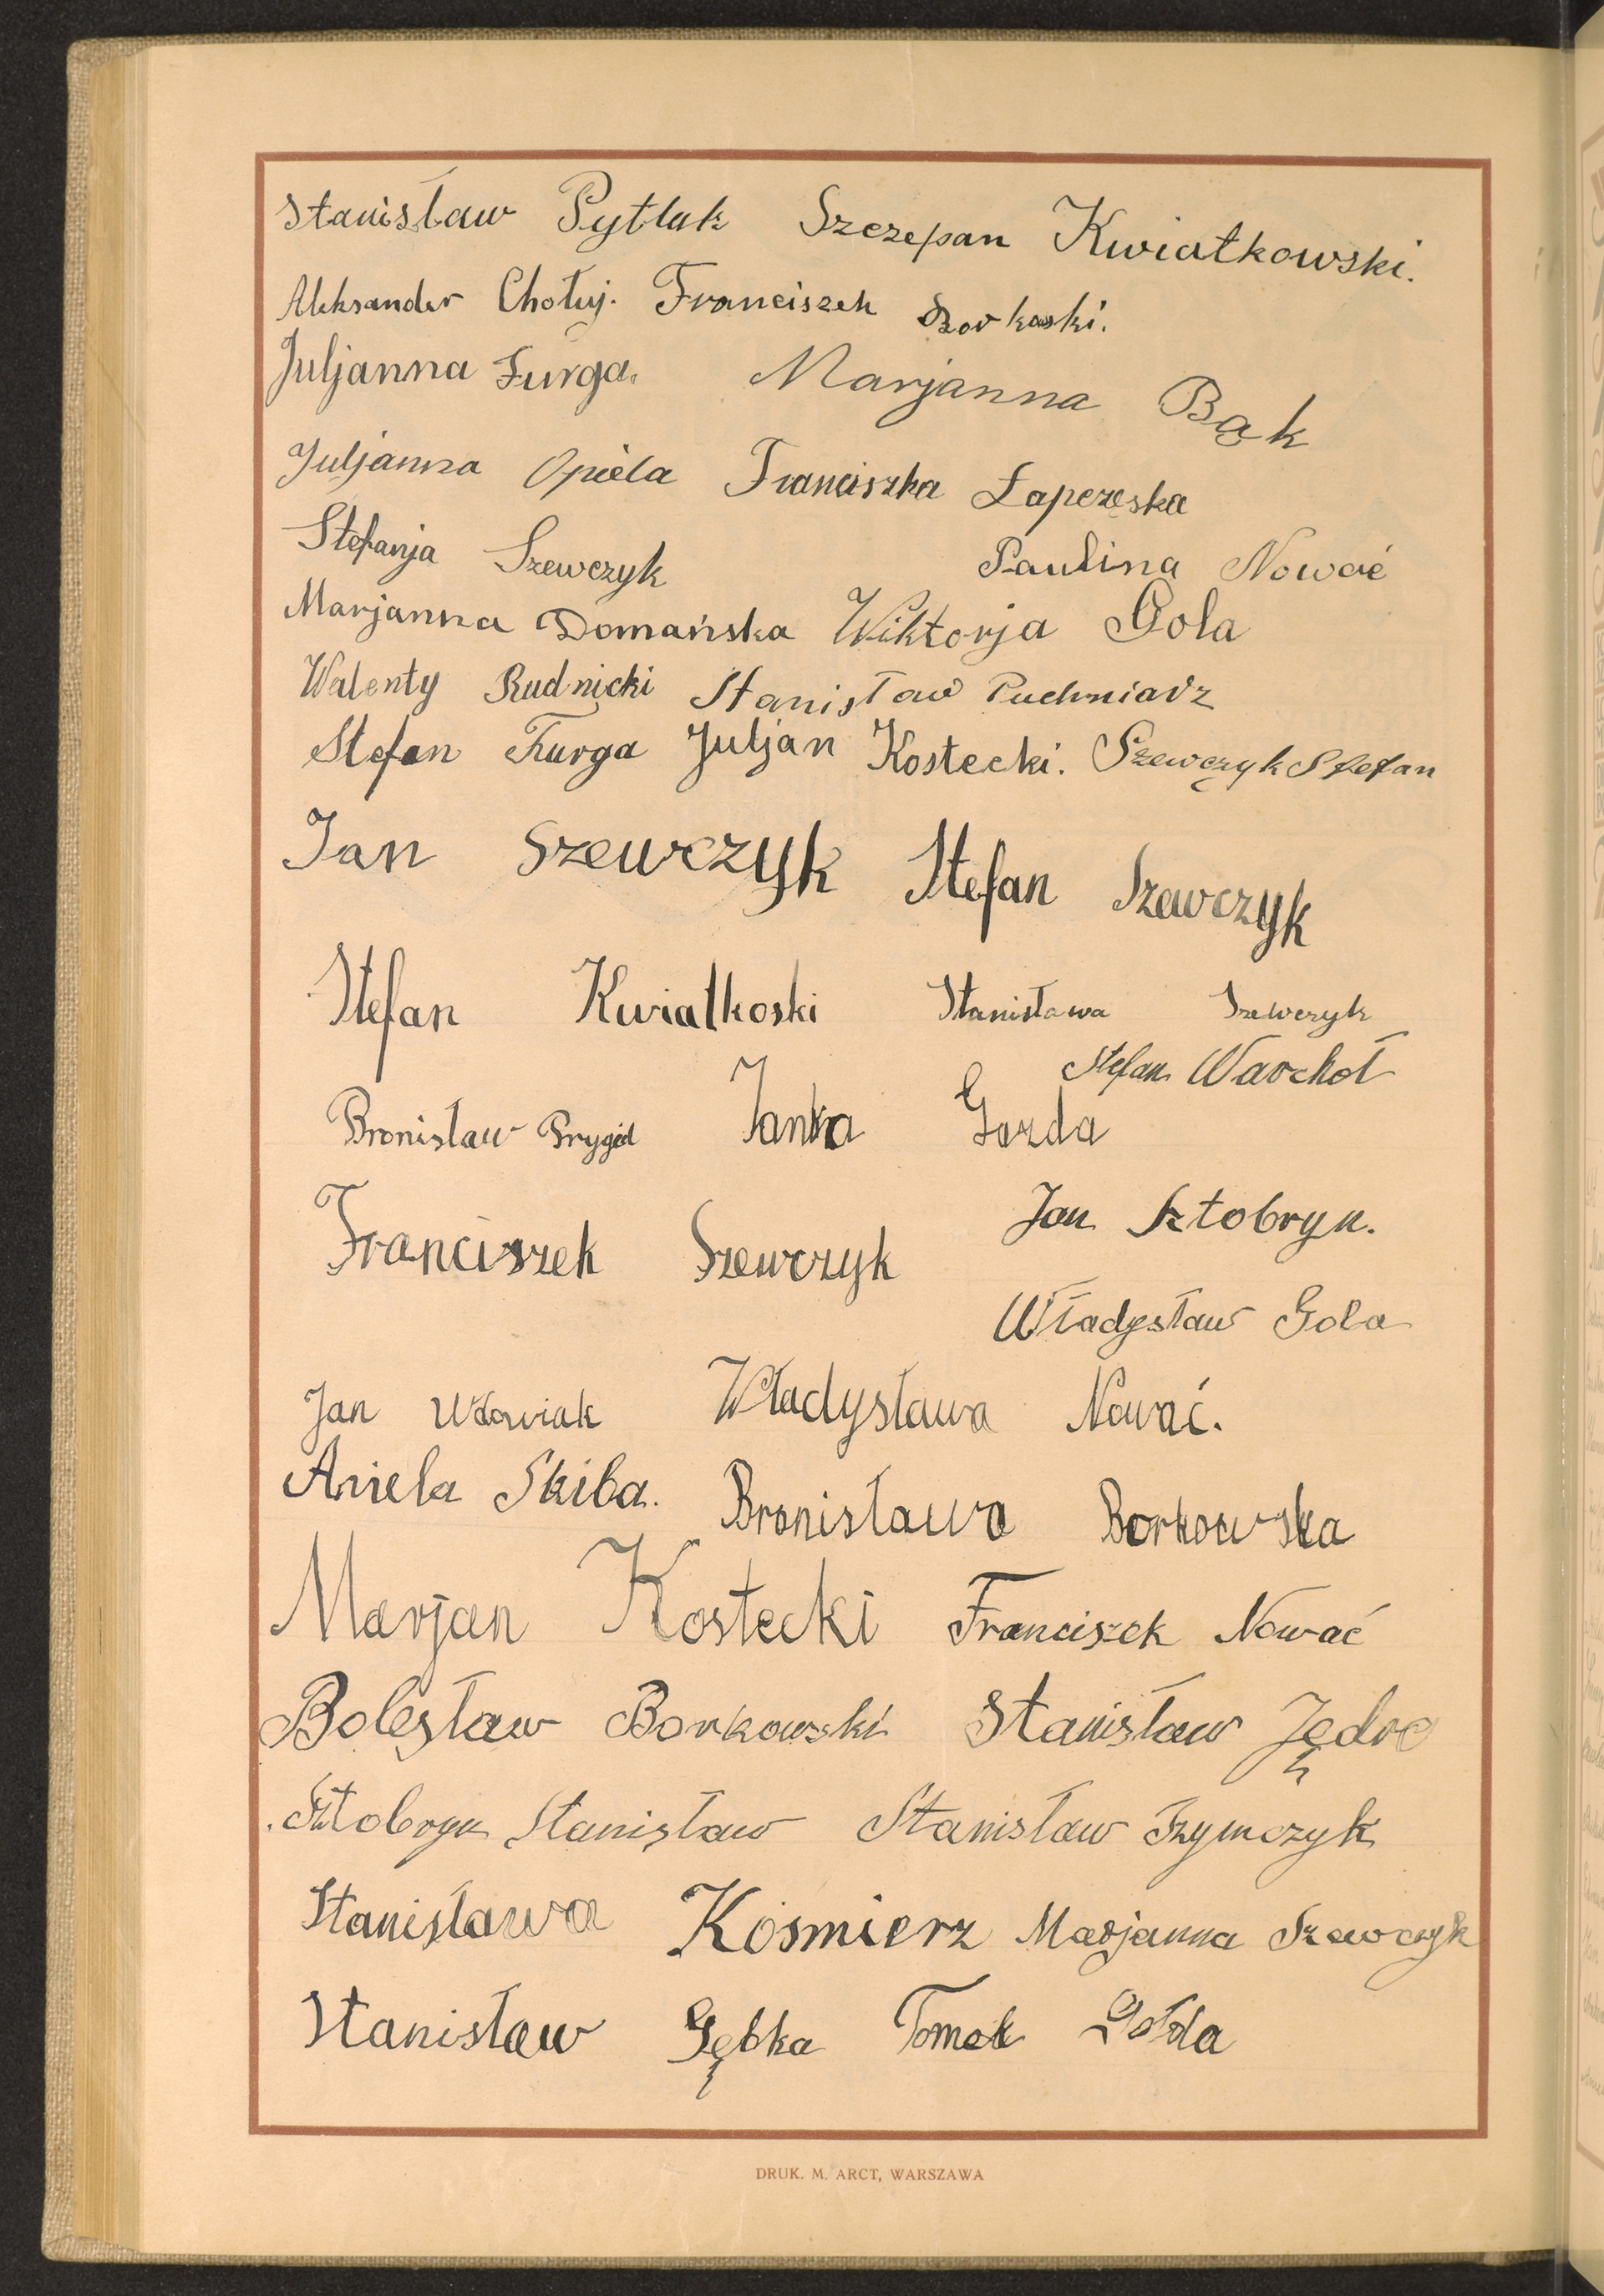 Stanisław Pytlak Szczepan Kwiatkowski.
Aleksander Chołuj. Franciszek
Juljanna Furga. Marjanna Bąk
Juljanna Opiela Franciszka Łapczeska
Stefanja Szewczyk Paulina Nować
Marjanna Domańska Wiktorja Gola
Walenty Rudnicki Stanisław Puchniarz
Stefan Furga Juljan Kostecki. Szewczyk Stefan
Jan Szewczyk Stefan Szewczyk
Stefan Kwiatkoski Stanisława Szewczyk
Stefan Warchoł
Bronisław Janka Gazda
Jan Sztobryn.
Franciszek Szewczyk
Władysław Gola
Jan Wdowiak Władysława Nować.
Aniela Skiba. Bronisława Borkowska
Marjan Kostecki Franciszek Nować
Bolesław Borkowski Stanisław Jędro
Sztobryn Stanisław Stanisław Szymczyk
Stanisława Kośmierz Marjanna Szewczyk
Stanisław Gębka Tomek Gołda
DRUK. M. ARCT, WARSZAWA